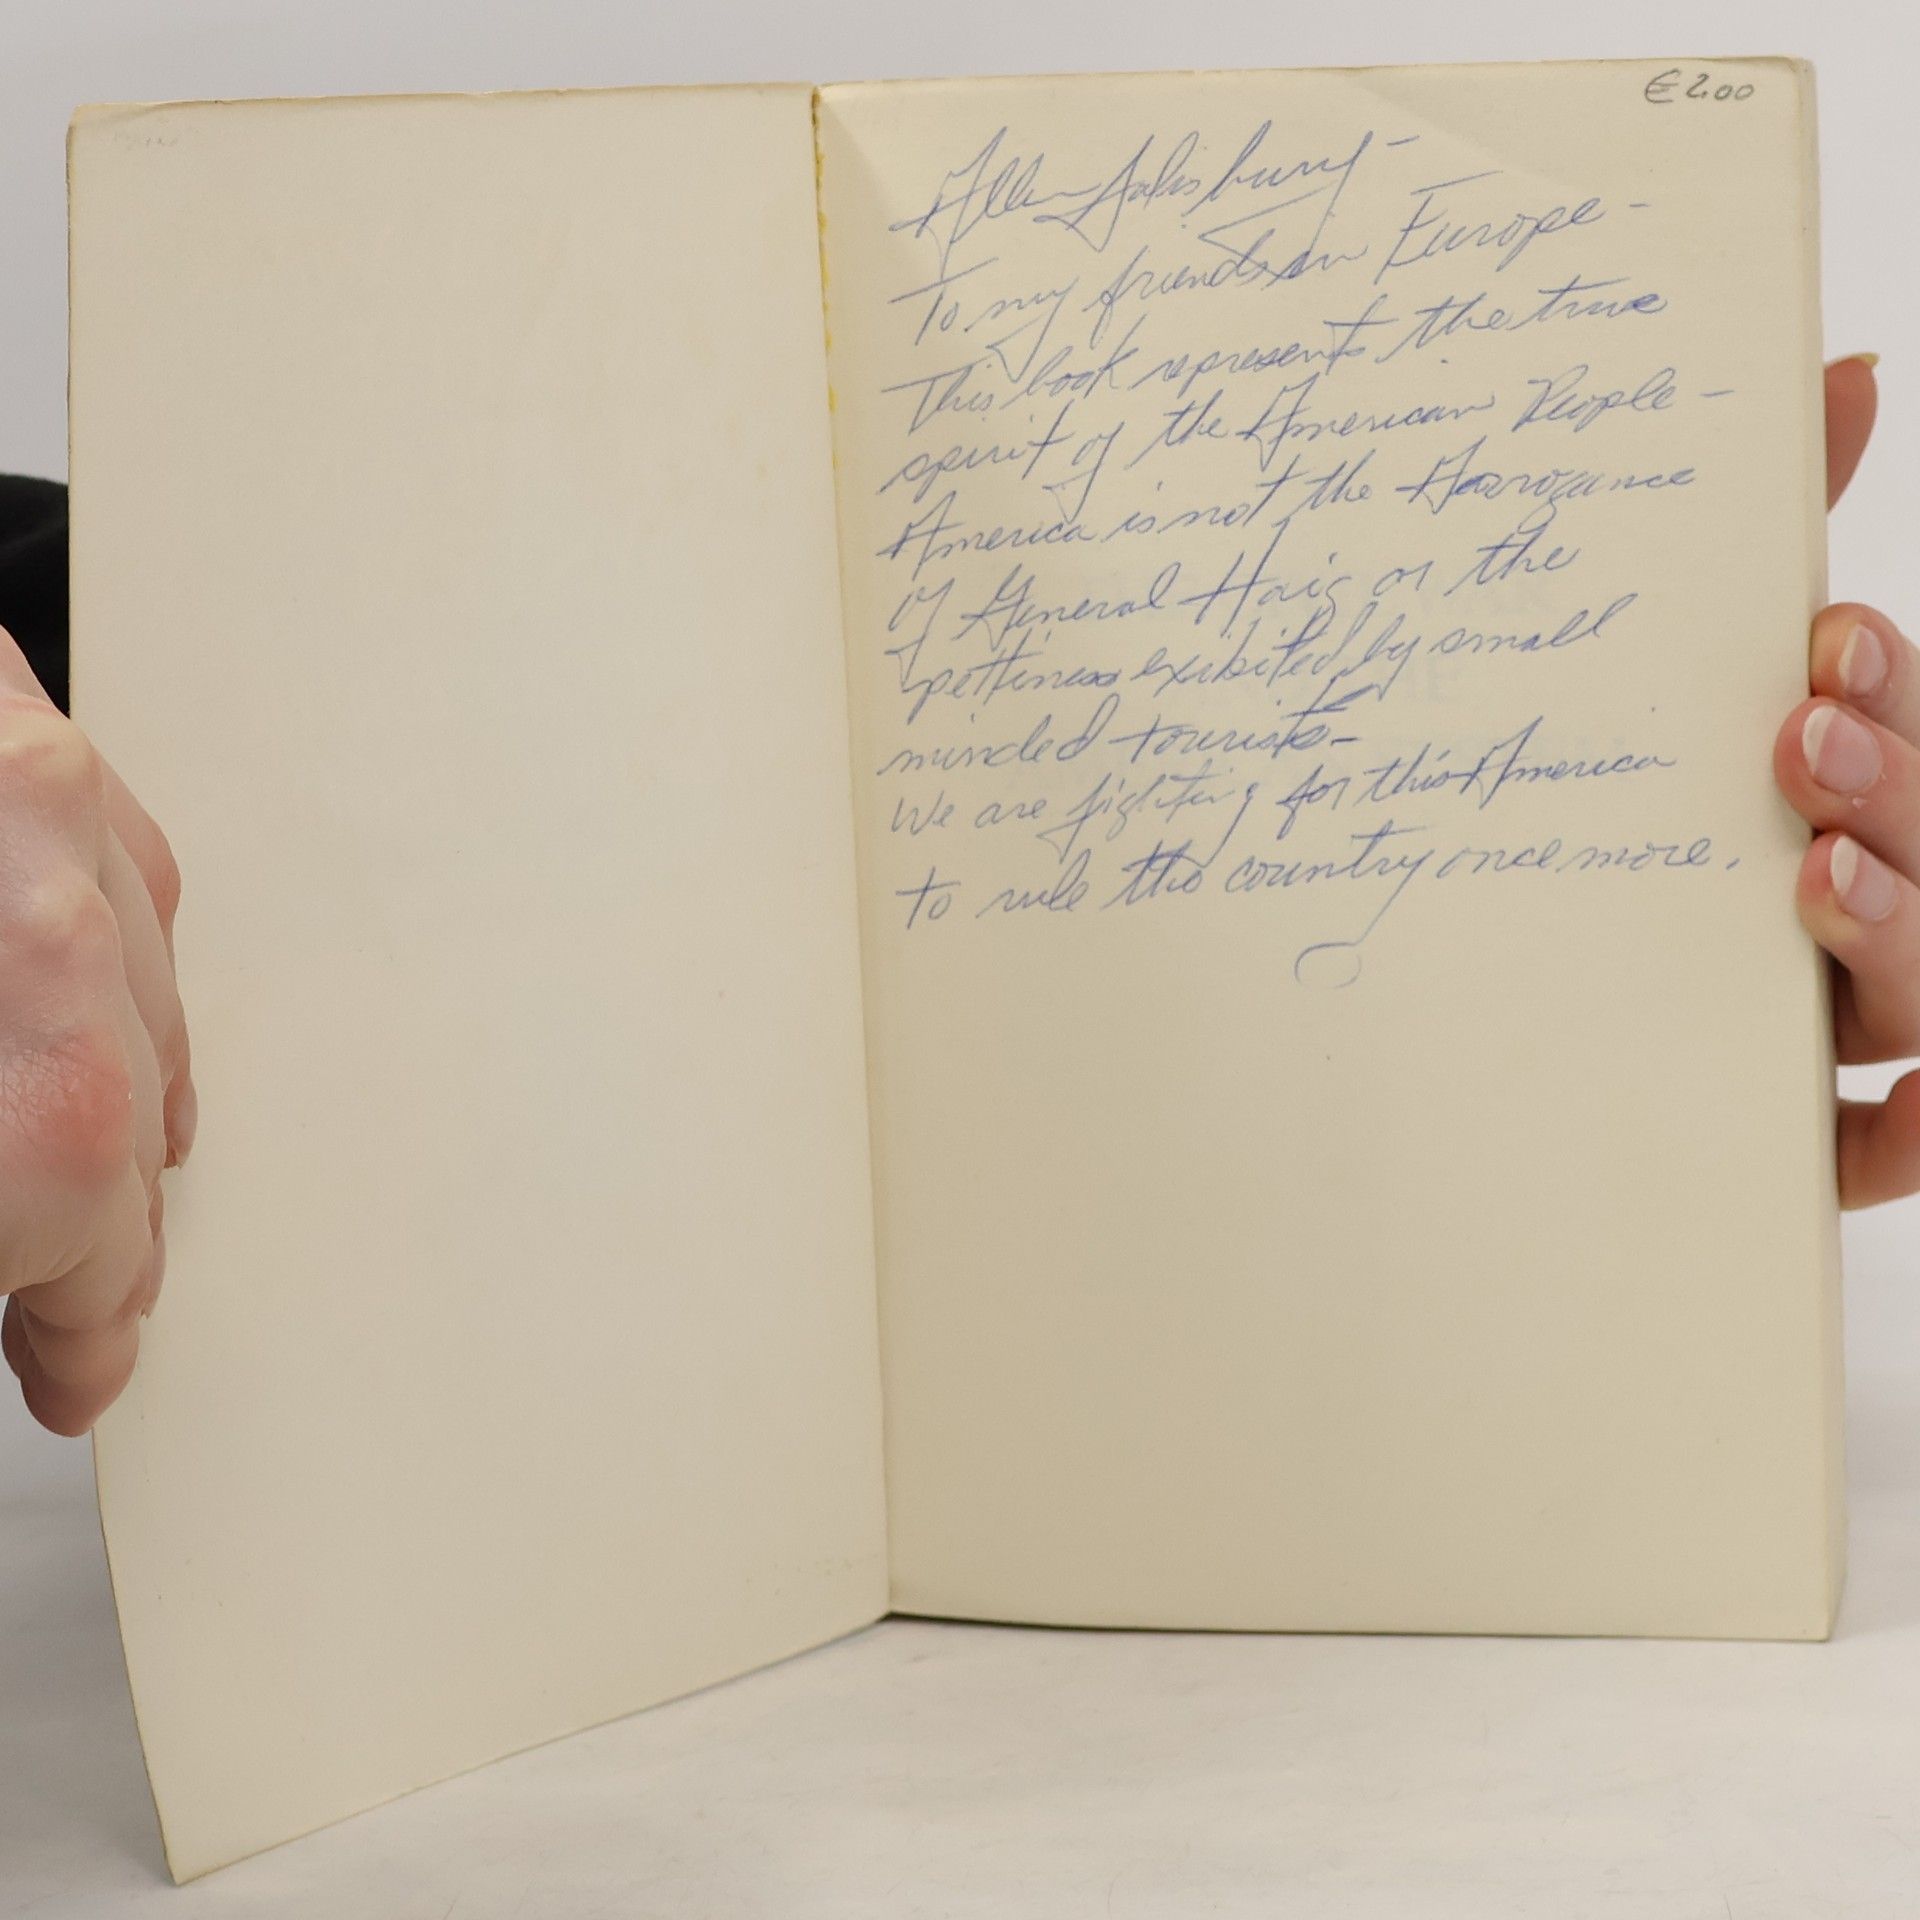 € 2.00
Allen Salisbury -
To my friends in Europe -
This book represents the true
spirit of the American People -
America is not the Aarrogance
of General Haig or the
pettiness exibited by small
minded tourists -
We are fighting for this America
to rule the country once more.